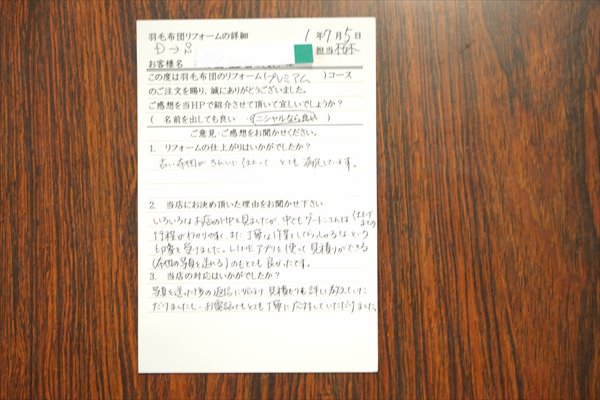 羽毛布団リフォームの詳細 1年7月5日
D→S 担当
お客様名
この度は羽毛布団のリフォーム(プレミアム)コース
のご注文を賜り、誠にありがとうございました。
ご感想を当HPで紹介させて頂いて宜しいでしょうか?
( 名前を出しても良い ・ イニシャルなら良い )
ご意見・ご感想をお聞かせください。
1. リフォームの仕上がりはいかがでしたか?
古い布団がきれいに とても満足しています。
2. 当店にお決め頂いた理由をお聞かせ下さい
いろいろなお店のHPを見ましたが、中でもダートーンさんは 仕上げまでの
行程がわかりやすく、また丁寧な作業をしてらっしゃるなという
印象を受けました。LINEアプリを使って見積りができる
(布団の写真を送れる)のもとても良かったです。
3. 当店の対応はいかがでしたか?
写真を送った後の返信に 見積りも詳しく教えていた
だけましたし、お電話でもとても丁寧に応対していただけました。